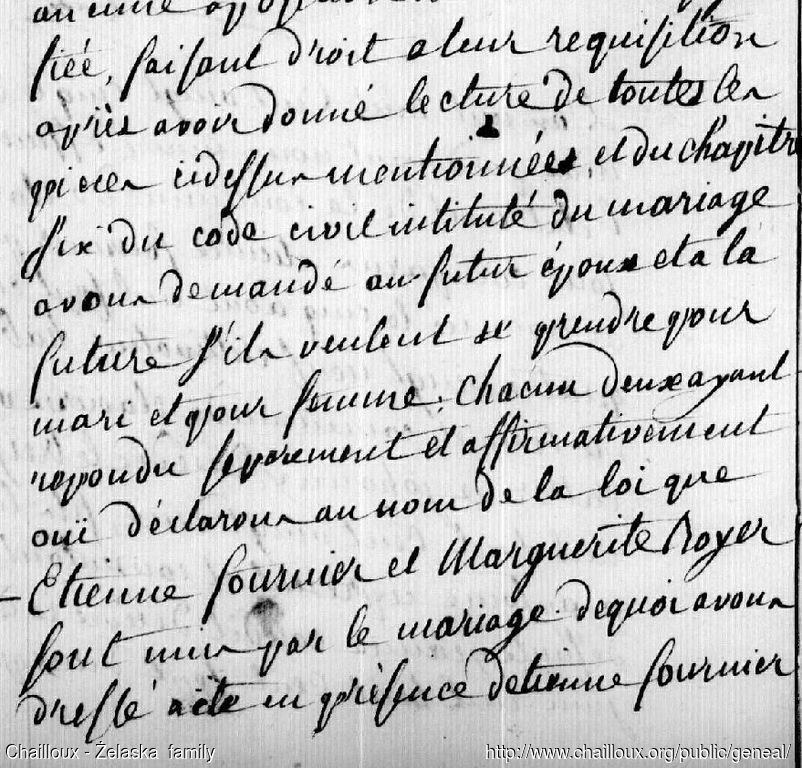 aucune opposition
fiée, faisant droit a leur requisition
après avoir donné lecture de toutes les
pieces cidessus mentionnées, et du chapitre
six du code civil intitulé du mariage
avons demandé au futur époux et a la
future s'ils veulent se prendre pour
mari et pour femme; chacun deux ayant
repondu separement et affirmativement
oui déclarons au nom de la loi que
Etienne fournier et Marguerite Royer
sont unis par le mariage. dequoi avons
dressé acte en présence detienne fournier
Chailloux - Żelaska family
http://www.chailloux.org/public/geneal/